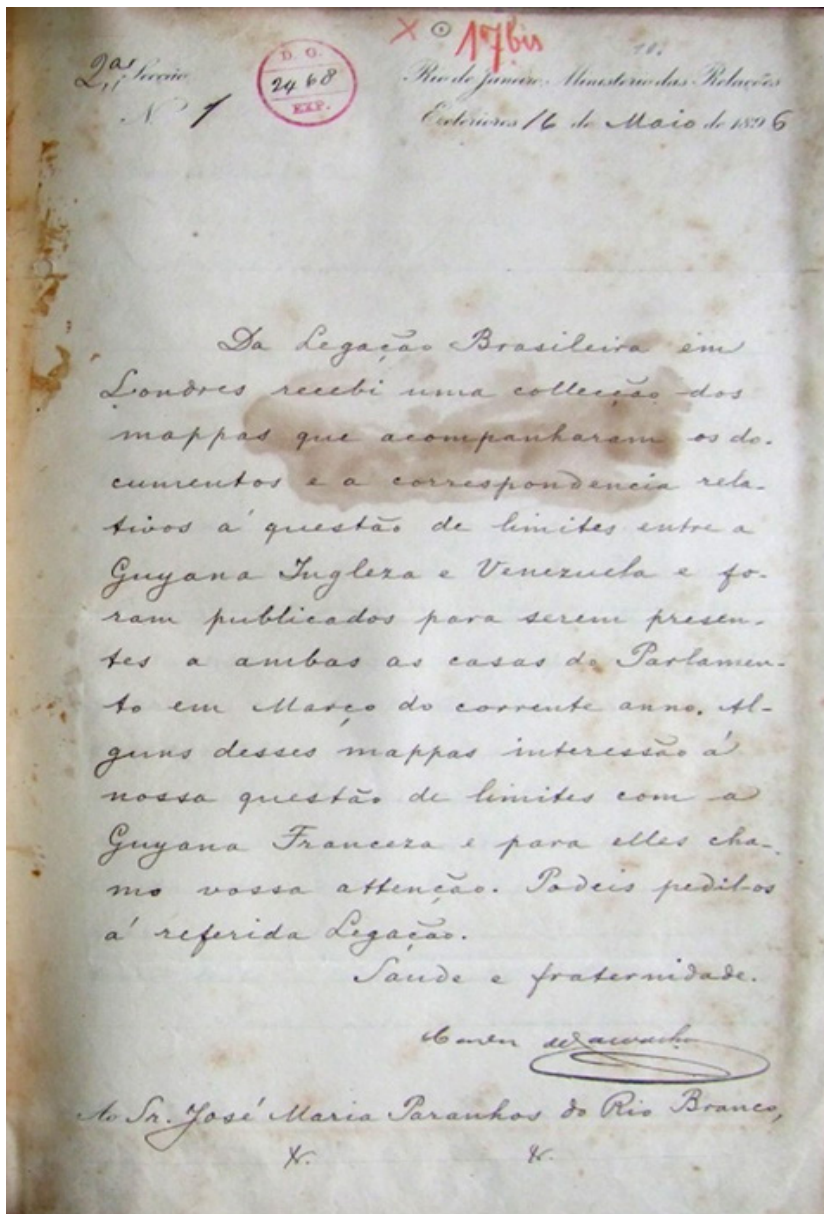 17 bis
2ª Secção
D. G.
2468
EXP.
Rio de Janeiro. Ministerio das Relações
N 1
Exteriores 16 de Maio de 1896
Da Legação Brasileira em
Londres recebi uma collecção dos
mappas que acompanharam os do-
cumentos e a correspondencia rela-
tivos á questão de limites entre a
Guyana Ingleza e Venezuela e fo-
ram publicados para serem presen-
tes a ambas as casas do Parlamen-
to em Março do corrente anno. Al-
guns desses mappas interessão á
nossa questão de limites com a
Guyana Franceza e para elles cha-
mo vossa attenção. Podeis pedil-os
á referida Legação.
Saude e fraternidade.
Carlos de Carvalho
Ao Sr. José Maria Paranhos do Rio Branco,